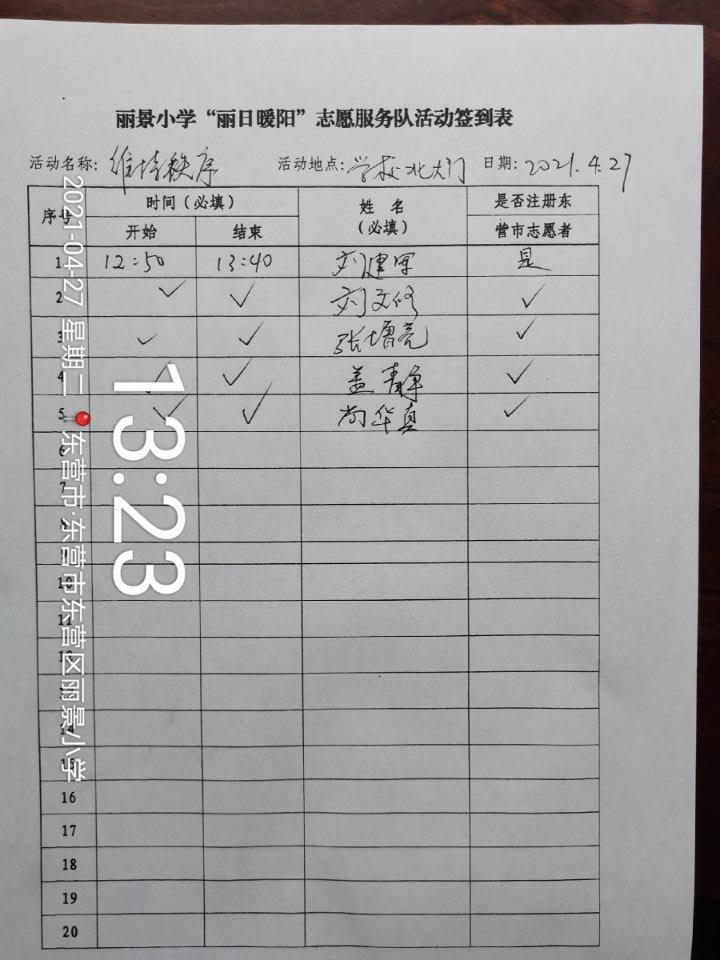 丽景小学“丽日暖阳”志愿服务队活动签到表
活动名称：维持秩序 活动地点：学校北大门 日期：2021.4.27
序号 时间（必填） 姓名（必填） 是否注册东营市志愿者
开始 结束
1 12:50 13:40 刘建军 是
2 ✓ ✓ 刘文修 ✓
3 ✓ ✓ 张增亮 ✓
4 ✓ ✓ 盖青净 ✓
5 ✓ ✓ 尚华真 ✓
6
7
8
9
10
11
12
13
14
15
16
17
18
19
20
13:23
2021-04-27 星期二
东营市·东营市东营区丽景小学